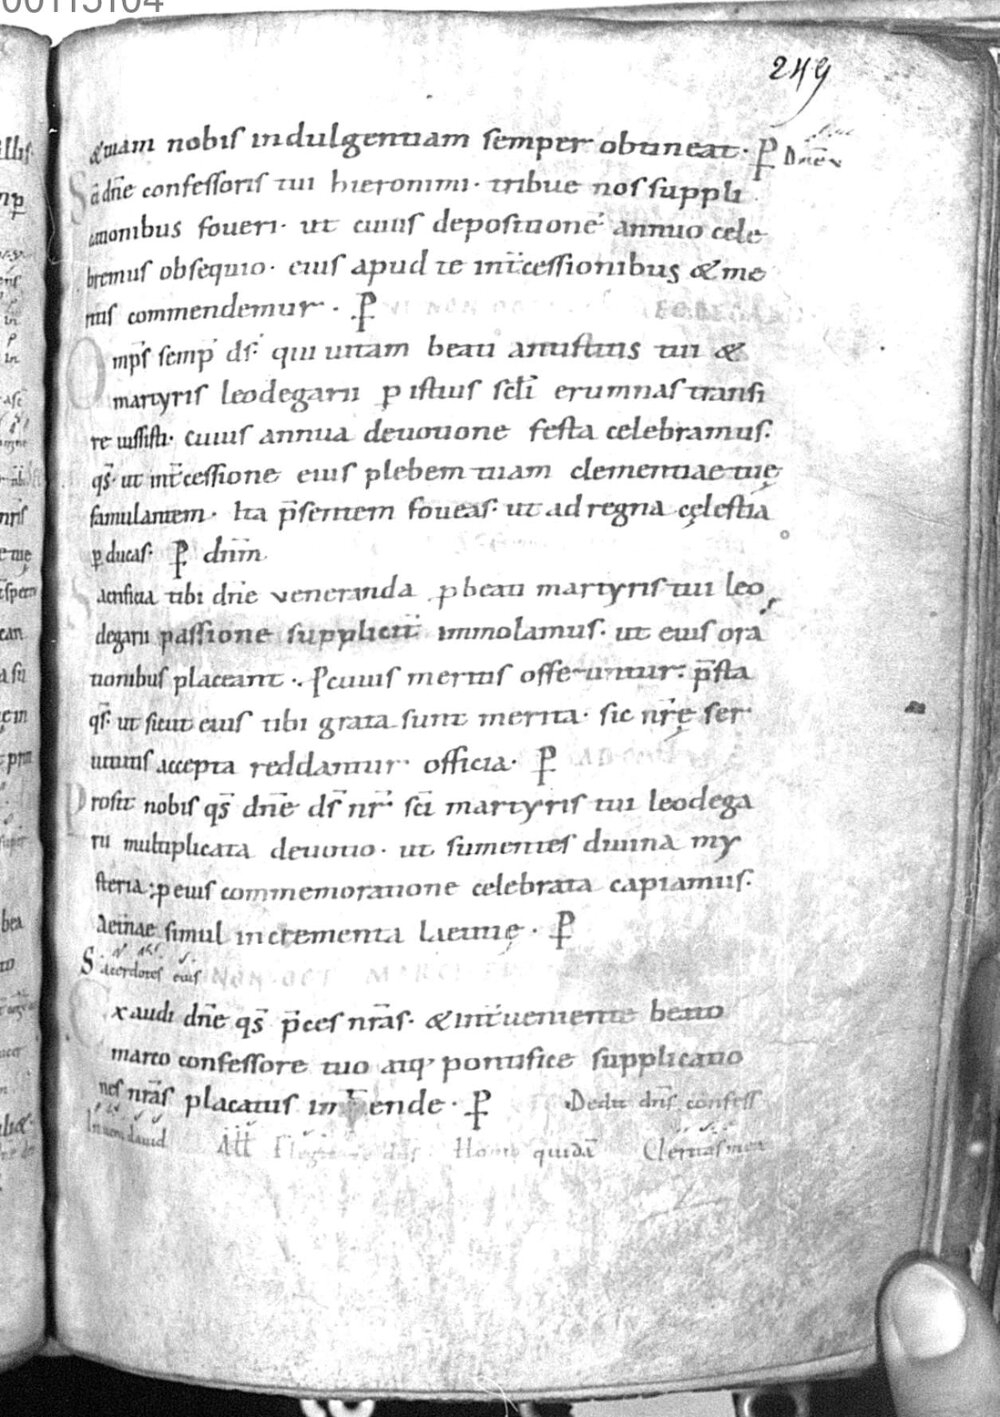 00115104
249
&uiam nobis indulgentiam semper obtineat· P Dñe
Scã dñe confessoris tui hieronimi· tribue nos suppli
cationibus foueri· ut cuius depositione annuo cele
bremus obsequio· eius apud te int̄cessionibus & me
ritis commendemur· P
Omp̄s semp̄ ds̄· qui uitam beati antistitis tui &
martyris leodegarii p istius scl̄i erumnas transi
re iussisti· cuius annua deuotione festa celebramus·
qs̄· ut int̄cessione eius plebem tuam clementiae tuę
famulantem· Ita p̄sentem foueas· ut ad regna cęlestia
p ducas· P dnm̄
Sacrificia tibi dn̄e veneranda p beati martyris tui leo
degarii passione supplicit̄ immolamus· ut eius ora
tionibus placeant· P cuius meritis offeruntur· p̄sta
qs̄· ut sicut eius tibi grata sunt merita· sic nr̄ę ser
uitutis accepta reddantur officia· P
Prosit nobis qs̄ dn̄e ds̄ nr̄· sc̄i martyris tui leodega
rii multiplicata deuotio· ut sumentes diuina my
steria; p eius commemoratione celebrata capiamus·
Aet̄nae simul incrementa laetitię· P
Sacerdotes eius NON· OCT MARCI
Exaudi dn̄e qs̄ p̄ces nr̄as· & int̄ueniente beato
marco confessore tuo atq· pontifice supplicatio
nes nr̄as placatus intende· P Dedit dn̄s confess
Inueni dauid All Elegit te dn̄s Homo quidā